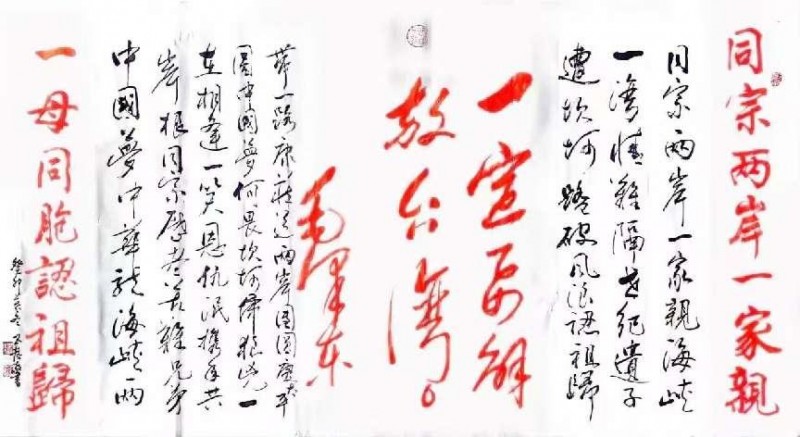 同宗两岸一家親
同宗两岸一家親海峡
一湾情难隔世纪遗子
遭坎坷踏破风浪认祖归
一定要解
放台湾。
毛泽东
中國夢中華龍海峡两
岸根同宗历苦难兄弟
在相逢一笑恩仇泯携手共
圆中国夢何畏坎坷狼一
带一路康莊道两岸团圆
一母同胞認祖歸
癸卯